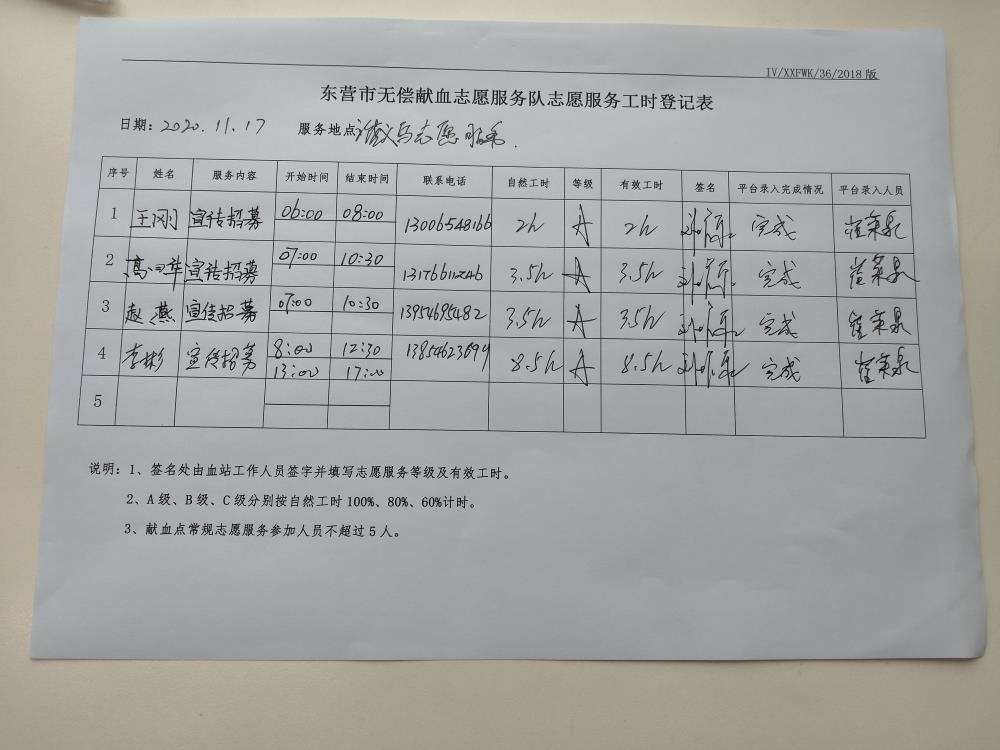 IV/XXFWK/36/2018版
东营市无偿献血志愿服务队志愿服务工时登记表
日期：2020.11.17 服务地点
序号 姓名 服务内容 开始时间 结束时间 联系电话 自然工时 等级 有效工时 签名 平台录入完成情况 平台录入人员
1 王刚 宣传招募 06:00 08:00 13006548166 2h A 2h 完成
2 宣传招募 07:00 10:30 3.5h A 3.5h 完成
3 赵燕 宣传招募 07:00 10:30 13954695482 3.5h A 3.5h 完成
4 李彬 宣传招募 8:00 12:30 13854623699 8.5h A 8.5h 完成
13:00 17:00
5
说明：1、签名处由血站工作人员签字并填写志愿服务等级及有效工时。
2、A级、B级、C级分别按自然工时100%、80%、60%计时。
3、献血点常规志愿服务参加人员不超过5人。